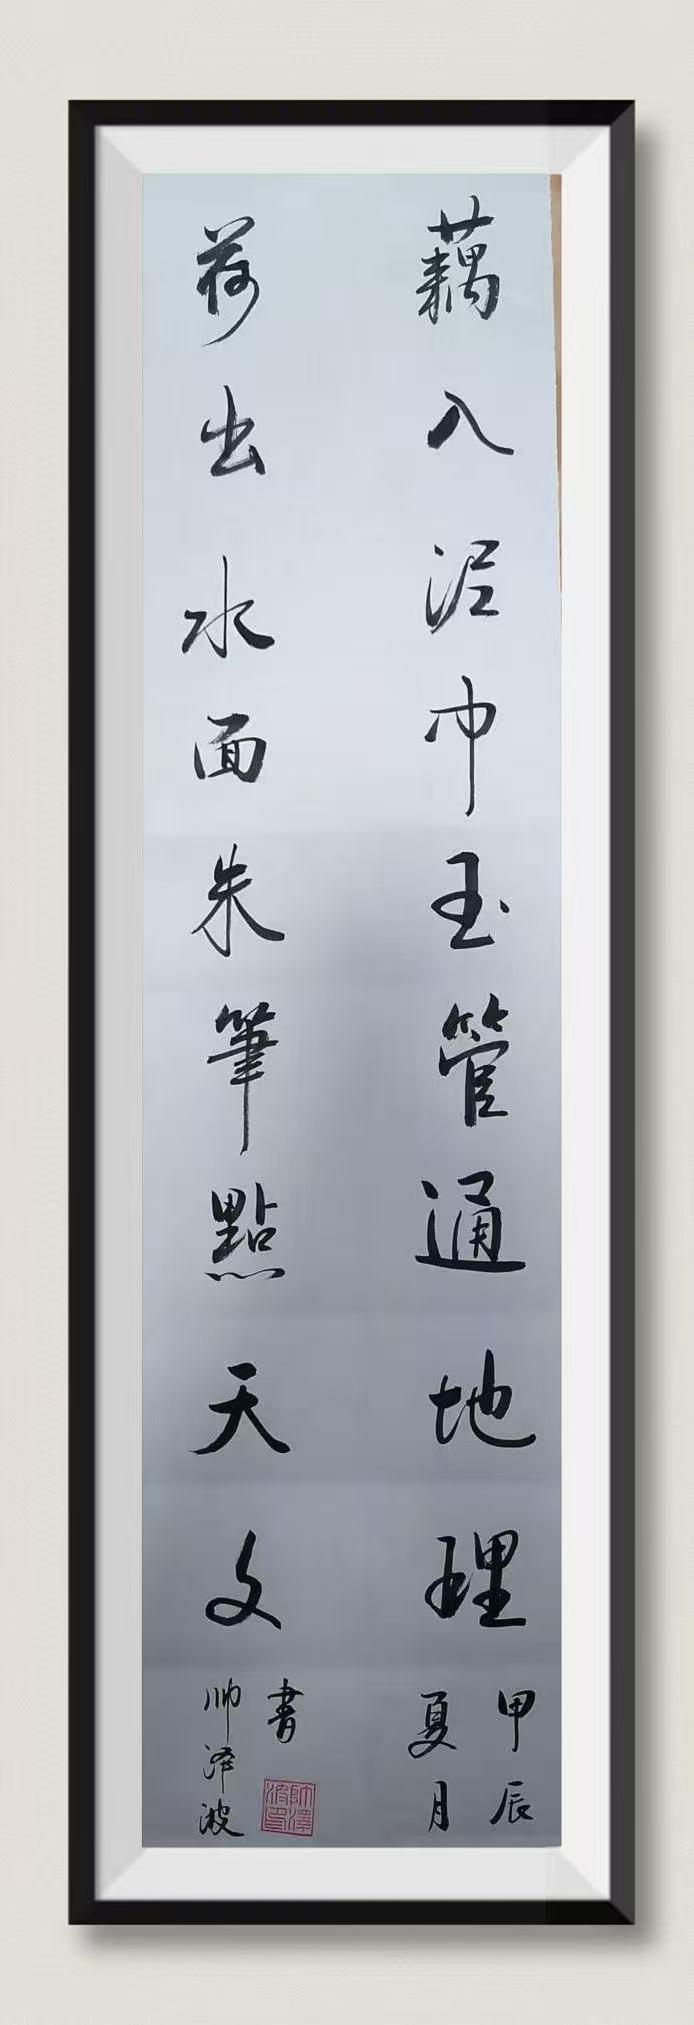 藕入泥中玉管通地理
甲辰
夏月
荷出水面朱筆點天文
書
帅泽波
帥澤波印